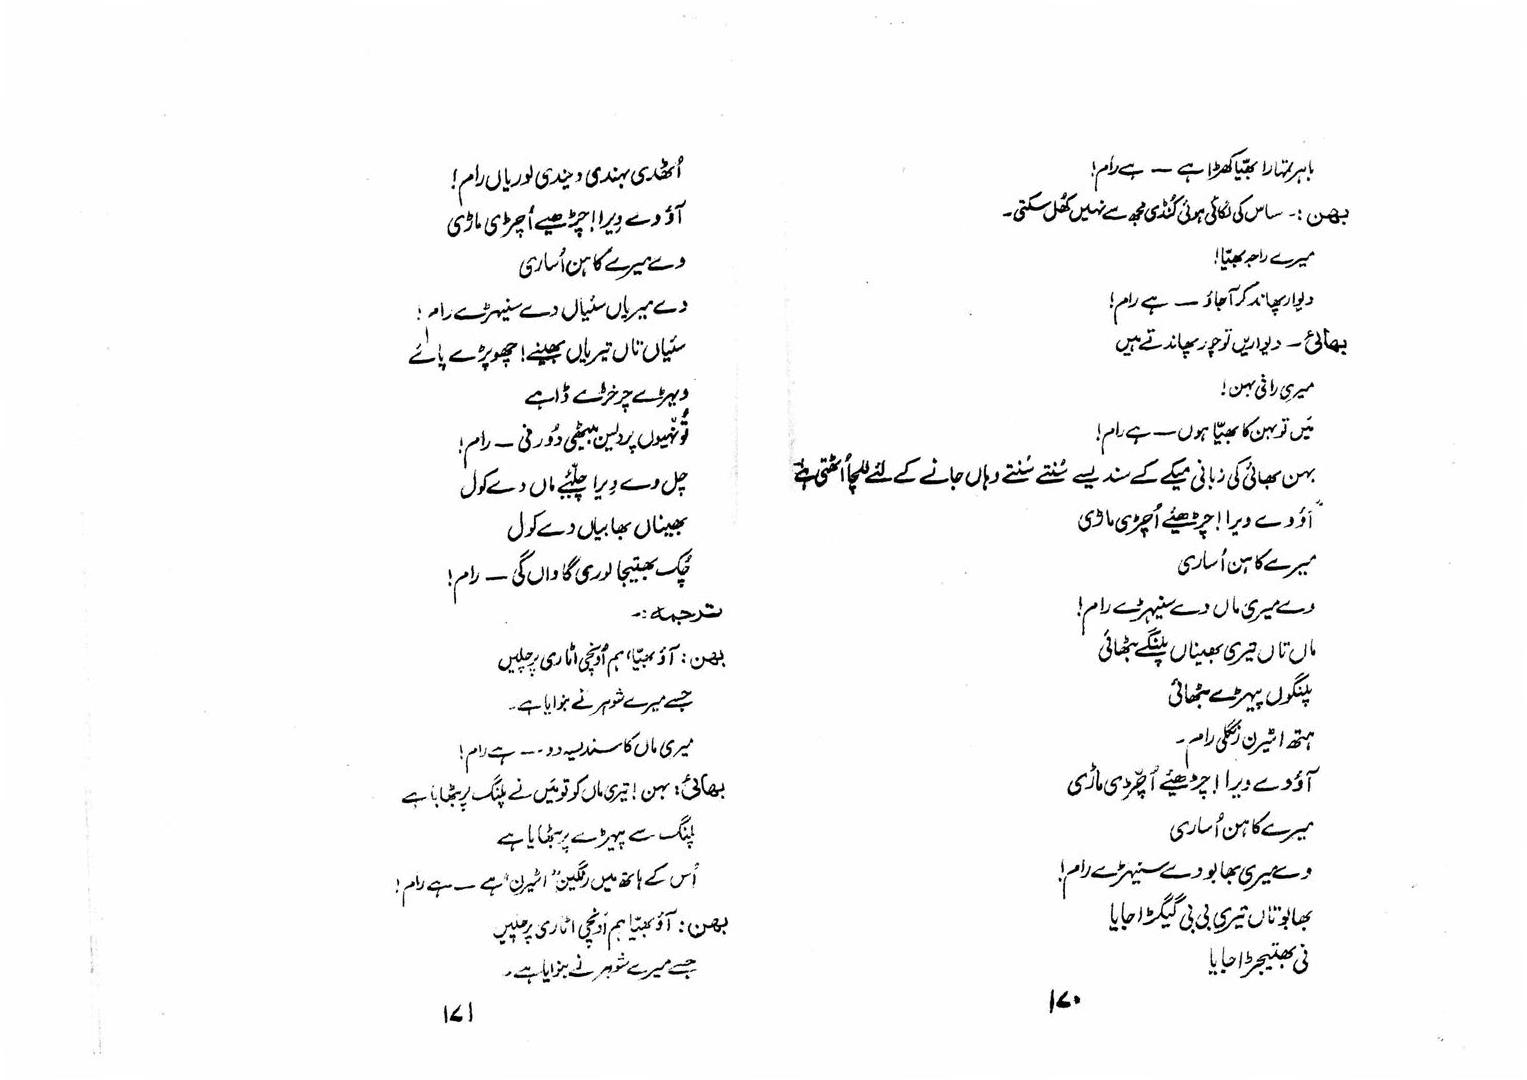 باہر تمہارا بھیّا کھڑا ہے — ہے رام!
بھن :- ساس کی لگائی ہوئی کُنڈی مجھ سے نہیں کھُل سکتی۔
میرے راجہ بھیّا!
دیوار پھاند کر آ جاؤ — ہے رام!
بھائی — دیواریں تو چور پھاندتے ہیں
میری رانی بہن!
مَیں تو بہن کا بھیّا ہوں — ہے رام!
بہن بھائی کی زبانی میکے کے سندیسے سُنتے سُنتے وہاں جانے کے لئے للچا اُٹھتی ہے
"آؤ وے ویرا! چڑھیئے اُچڑی ماڑی
میرے کاہن اُساری
وے میری ماں دے سنیہڑے رام!
ماں تاں تیری بھیناں پلنگے بٹھائی
پلنگوں پیہڑے بٹھائی
ہتھ اٹیرن رنگلی رام۔
آؤ وے ویرا! چڑھیئے اُچّڑی ماڑی
میرے کاہن اُساری
وے میری بھابو دے سنیہڑے رام!
بھابو تاں تیری بی بی گیگڑا جایا
نی بھتیجڑا جایا
۱۷۰
اُٹھدی بہندی دیندی لوریاں رام!
آؤ وے وِیرا! چڑھیے اُچڑی ماڑی
وے میرے کاہن اُساری
وے میریاں سئیاں دے سنیہڑے رام!
سئیاں تاں تیریاں بھینے! چھوپڑے پائے
ویہڑے چرخڑے ڈاہے
تُوں نہیوں پردیس بیٹھی دُور نی — رام!
چل وے وِیرا چلّیئے ماں دے کول
بھیناں بھابیاں دے کول
چُک بھتیجا لوری گاواں گی — رام!
ترجمہ :-
بھن : آؤ بھیّا، ہم اُونچی اٹاری پر چلیں
جسے میرے شوہر نے بنوایا ہے۔
میری ماں کا سندیسہ دو -- ہے رام!
بھائی : بہن! تیری ماں کو تو مَیں نے پلنگ پر بٹھایا ہے
پلنگ سے پیہڑے پر بٹھایا ہے
اُس کے ہاتھ میں رنگین "اٹیرن" ہے — ہے رام!
بھن : آؤ بھیّا ہم اُونچی اٹاری پر چلیں
جسے میرے شوہر نے بنوایا ہے۔
۱۷۱